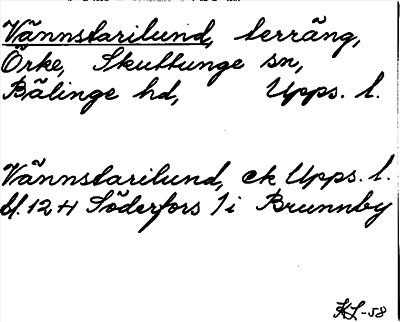 Vännstarilund, terräng,
Örke, Skuttunge sn,
Bälinge hd, Upps. l.
Vännstarilund, ek Upps. l.
bl. 12 H Söderfors I i Brunnby
KL-58